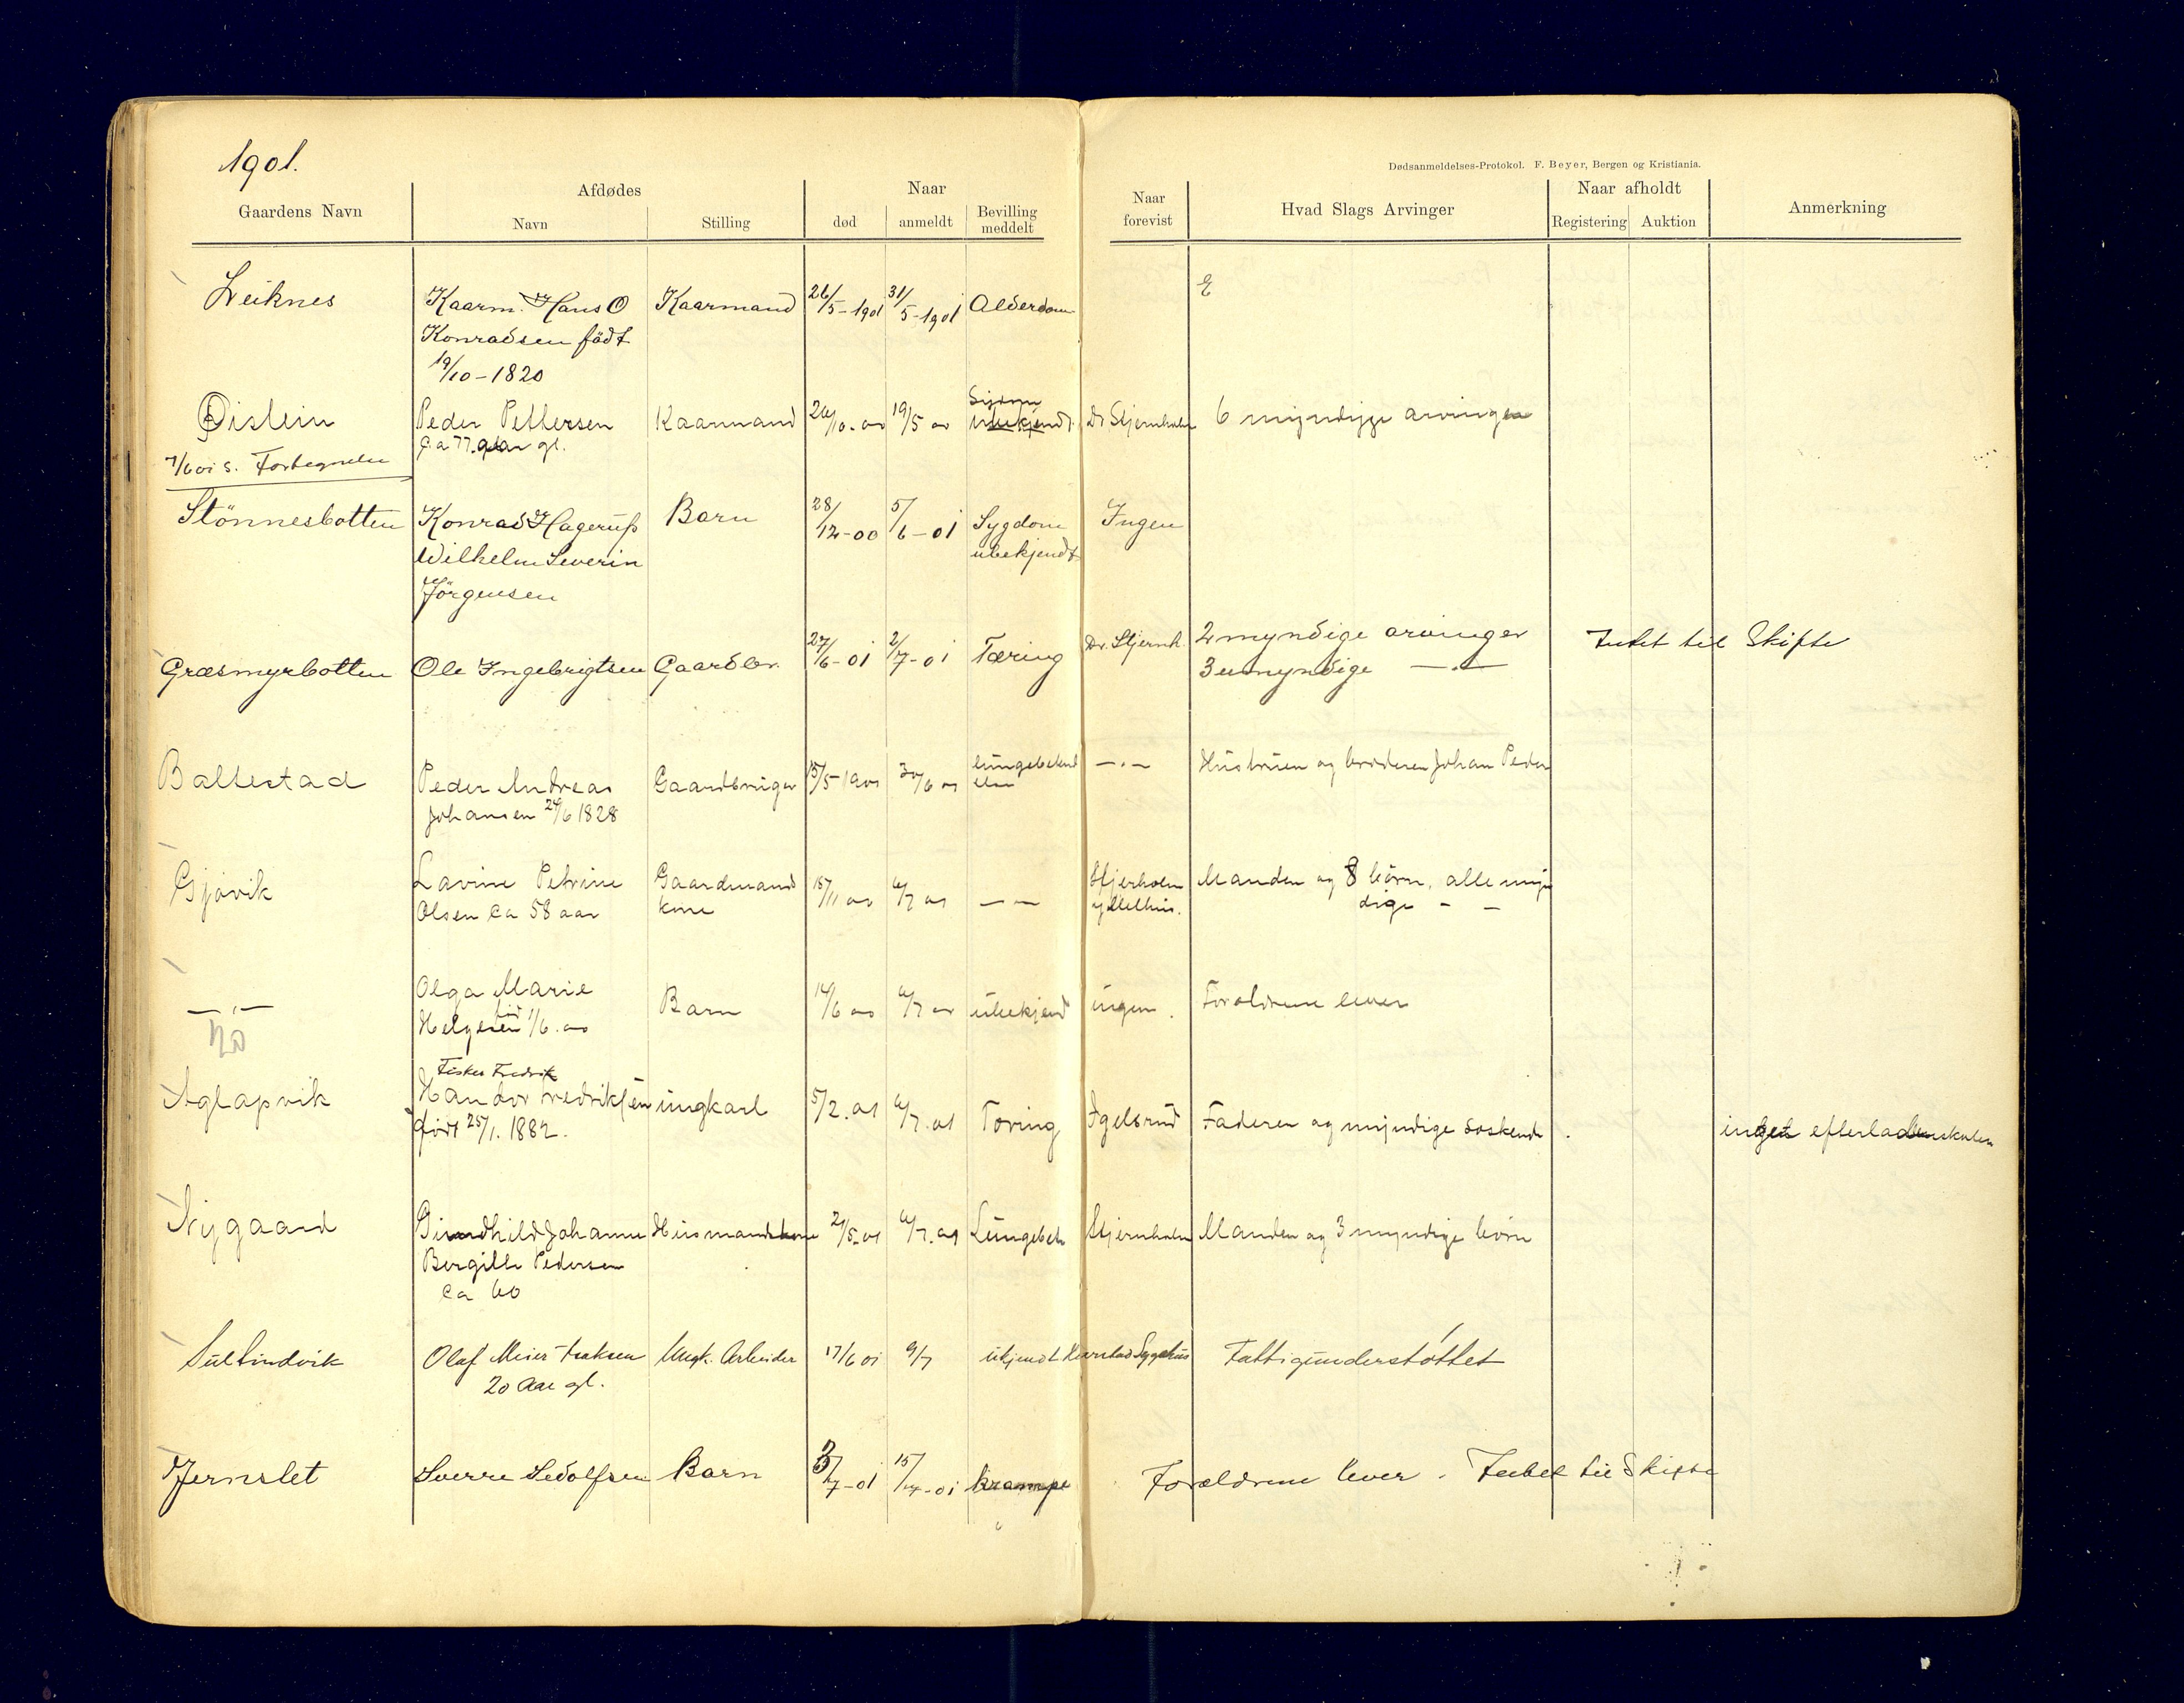 1901.
Dødsanmeldelses-Protokol. F. Beyer, Bergen og Kristiania.
Gaardens Navn
Afdødes
Navn
Stilling
Naar
død
anmeldt
Bevilling meddelt
Naar forevist
Hvad Slags Arvinger
Naar afholdt
Registering
Auktion
Anmerkning
Leiknes
Kaarm. Hans O
Kaarmand
26/5-1901
31/5-1901
Alderdom
E
Konradsen födt
19/10-1820
Øistein
Peder Pettersen
Kaarmand
26/10.00
19/5 01
Sygdom
ubekjendt.
Dr Stjernholm
6 myndige arvinger
ca 77 aar gl.
7/6 01 s. Fortegnelse
Stönnesbotten
Konrad Hagerup
Barn
28/12-00
5/6-01
Sygdom
Ingen
Wilhelm Severin
ubekjendt
Jörgensen
Græsmyrbotten
Ole Ingebrigtsen
Gaardbr.
27/6-01
2/7-01
Tæring
Dr. Stjernh.
2 myndige arvinger
Intet til Skifte
3 umyndige —.—
Ballestad
Peder Andreas
Gaardbruger
15/5-1901
30/6 01
—.—
Hustruen og broderen Johan Peder
Johansen 24/6 1828
Gjövik
Lavine Petrine
Gaardmands
15/11 00
6/7 01
— —
Stjerholm
Manden og 8 börn, alle myn
Olsen ca 58 aar
kone
dige - -
—,—
Olga Marie
Barn
14/6 00
6/7 01
ubekjend
ingen.
Foraldrene lever
Helgesen född 1/6.00
Fisker Fredrik
Aglapvik
Handor Fredriksen
ungkarl
5/2.01
6/7.01
Toring
Egelsrud
Faderen og myndige soskende
inget efterladenskaber
födt 25/1. 1882.
Nygaard
Gundhild Johanne
Husmandskone
21/5.01
6/7.01
Lungebet
Stjernholm
Manden og 3 myndige börn
Bergitte Pedersen
ca 60
Sultindvik
Olaf Meier Isaksen
Ungk. Arbeider
17/6 01
9/7
ukjendt
Harstad Sygehus
Fattigunderstöttet
20 Aar gl.
Jernslet
Sverre Sedolfsen
Barn
3/7-01
15/7-01
krampe
Forældrene lever. Intet til Skifte